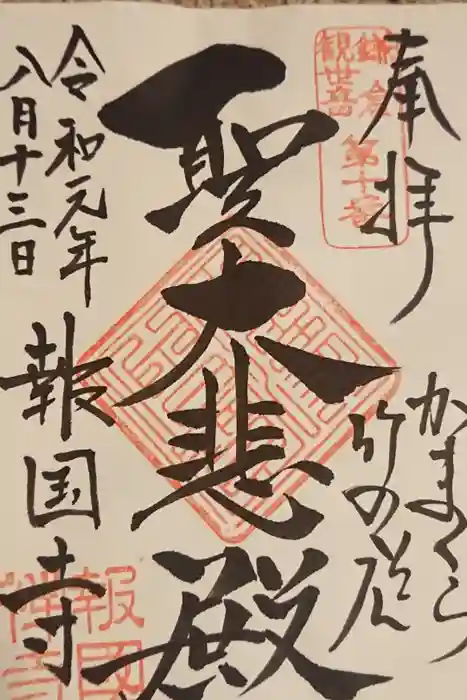 奉拝
鎌倉
観世音
第十番
かまくら
竹の庭
聖大悲殿
令和元年
八月十三日
報国寺
報國
禅寺